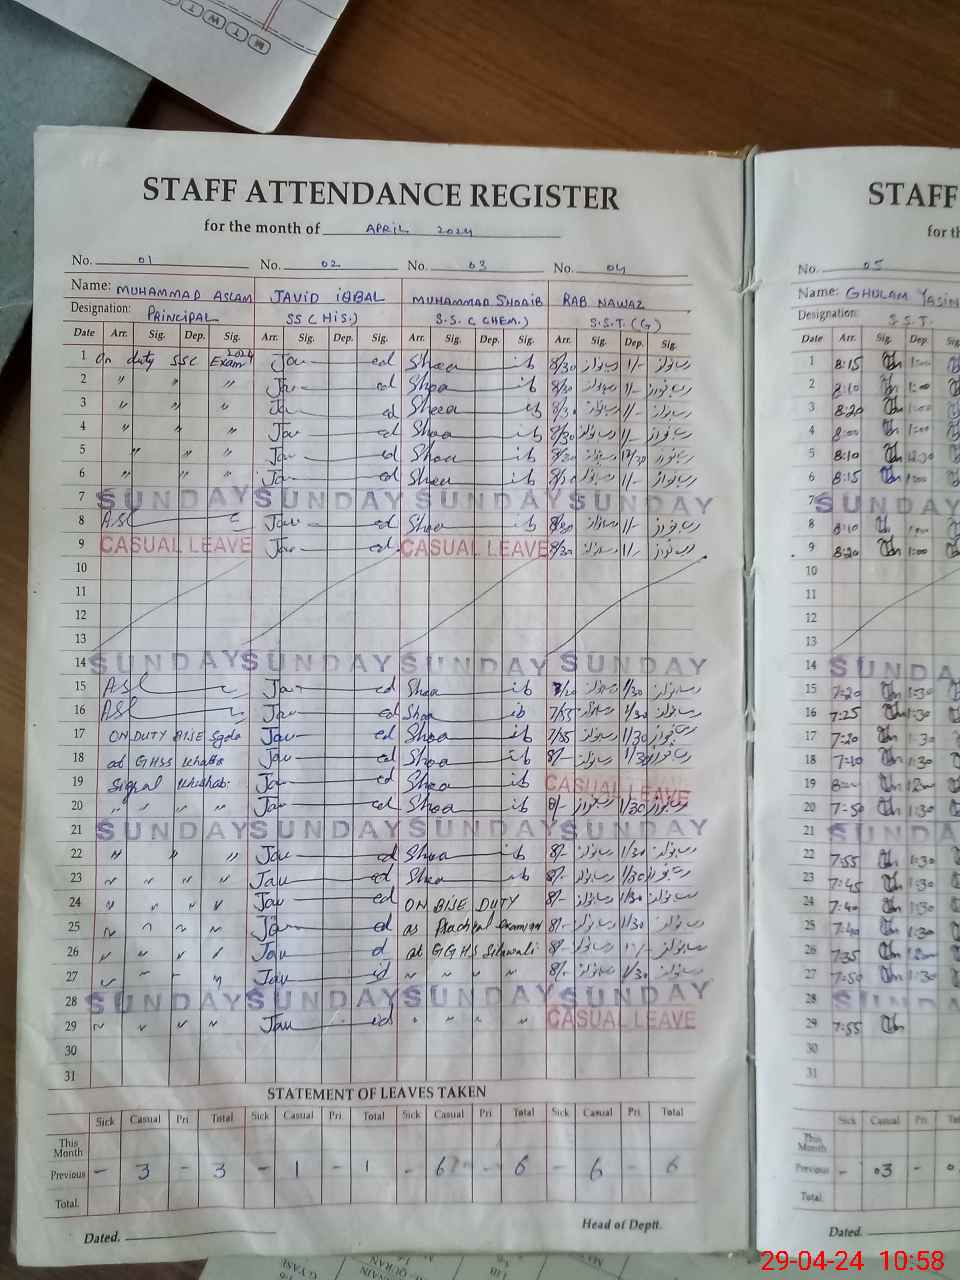 STAFF ATTENDANCE REGISTER
for the month of APRIL 2024
No. 01 No. 02 No. 03 No. 04
Name: MUHAMMAD ASLAM JAVID IQBAL MUHAMMAD SHOAIB RAB NAWAZ
Designation: PRINCIPAL SS (HIS.) S.S. (CHEM.) S.S.T. (G)
Date Arr. Sig. Dep. Sig. Arr. Sig. Dep. Sig. Arr. Sig. Dep. Sig. Arr. Sig. Dep. Sig.
1 On duty SSC Exam 2024 Jav ed Shoa ib 8/30 رب نواز 1/- رب نواز
2 " " " Jav ed Shoa ib 8/30 رب نواز 1/- رب نواز
3 " " " Jav ed Shoa ib 8/30 رب نواز 1/- رب نواز
4 " " " Jav ed Shoa ib 8/30 رب نواز 1/- رب نواز
5 " " " Jav ed Shoa ib 8/30 رب نواز 12/30 رب نواز
6 " " " Jav ed Shoa ib 8/30 رب نواز 1/- رب نواز
7 SUNDAY SUNDAY SUNDAY SUNDAY
8 ASL Jav ed Shoa ib 8/30 رب نواز 1/- رب نواز
9 CASUAL LEAVE Jav ed CASUAL LEAVE 8/30 رب نواز 1/- رب نواز
10
11
12
13
14 SUNDAY SUNDAY SUNDAY SUNDAY
15 ASL Jav ed Shoa ib رب نواز 1/30 رب نواز
16 ASL Jav ed Shoa ib 7/55 رب نواز 1/30 رب نواز
17 ON DUTY BISE Sgda Jav ed Shoa ib 7/55 رب نواز 1/30 رب نواز
18 at GHSS Khabba Jav ed Shoa ib 8/- رب نواز 1/30 رب نواز
19 Jav ed Shoa ib CASUAL LEAVE
20 " " " " Jav ed Shoa ib 8/- رب نواز 1/30 رب نواز
21 SUNDAY SUNDAY SUNDAY SUNDAY
22 " " " Jav ed Shoa ib 8/- رب نواز 1/30 رب نواز
23 " " " " Jav ed Shoa ib 8/- رب نواز 1/30 رب نواز
24 " " " " Jav ed ON BISE DUTY 8/- رب نواز 1/30 رب نواز
25 " " " " Jav ed as Practical examiner 8/- رب نواز 1/30 رب نواز
26 " " " " Jav d at GGHS Silanwali 8/- رب نواز رب نواز
27 " " " " Jav id " " " " 8/- رب نواز 1/30 رب نواز
28 SUNDAY SUNDAY SUNDAY SUNDAY
29 " " " " Jav ed " " " " CASUAL LEAVE
30
31
STATEMENT OF LEAVES TAKEN
Sick Casual Pri. Total Sick Casual Pri. Total Sick Casual Pri. Total Sick Casual Pri. Total
This Month
Previous - 3 - 3 - 1 - 1 - 6 - 6 - 6 6
Total.
Dated. Head of Deptt.
STAFF
for th
No. 05
Name: GHULAM YASIN
Designation: S.S.T.
Date Arr. Sig. Dep. Sig.
1 8:15 1:00
2 8:10 1:00
3 8:20 1:00
4 8:00 1:00
5 8:10 12:30
6 8:15 1:00
7 SUNDAY
8 8:10 1:00
9 8:20 1:00
10
11
12
13
14 SUNDA
15 7:20 1:30
16 7:25 1:30
17 7:20 1:30
18 7:10 1:30
19 8:00
20 7:50 1:30
21 SUNDA
22 7:55 1:30
23 7:45 1:30
24 7:40 1:30
25 7:40 1:30
26 7:35
27 7:50 1:30
28 SUNDA
29 7:55
30
31
Sick Casual Pri.
This Month
Previous - 03 -
Total
Dated.
29-04-24 10:58